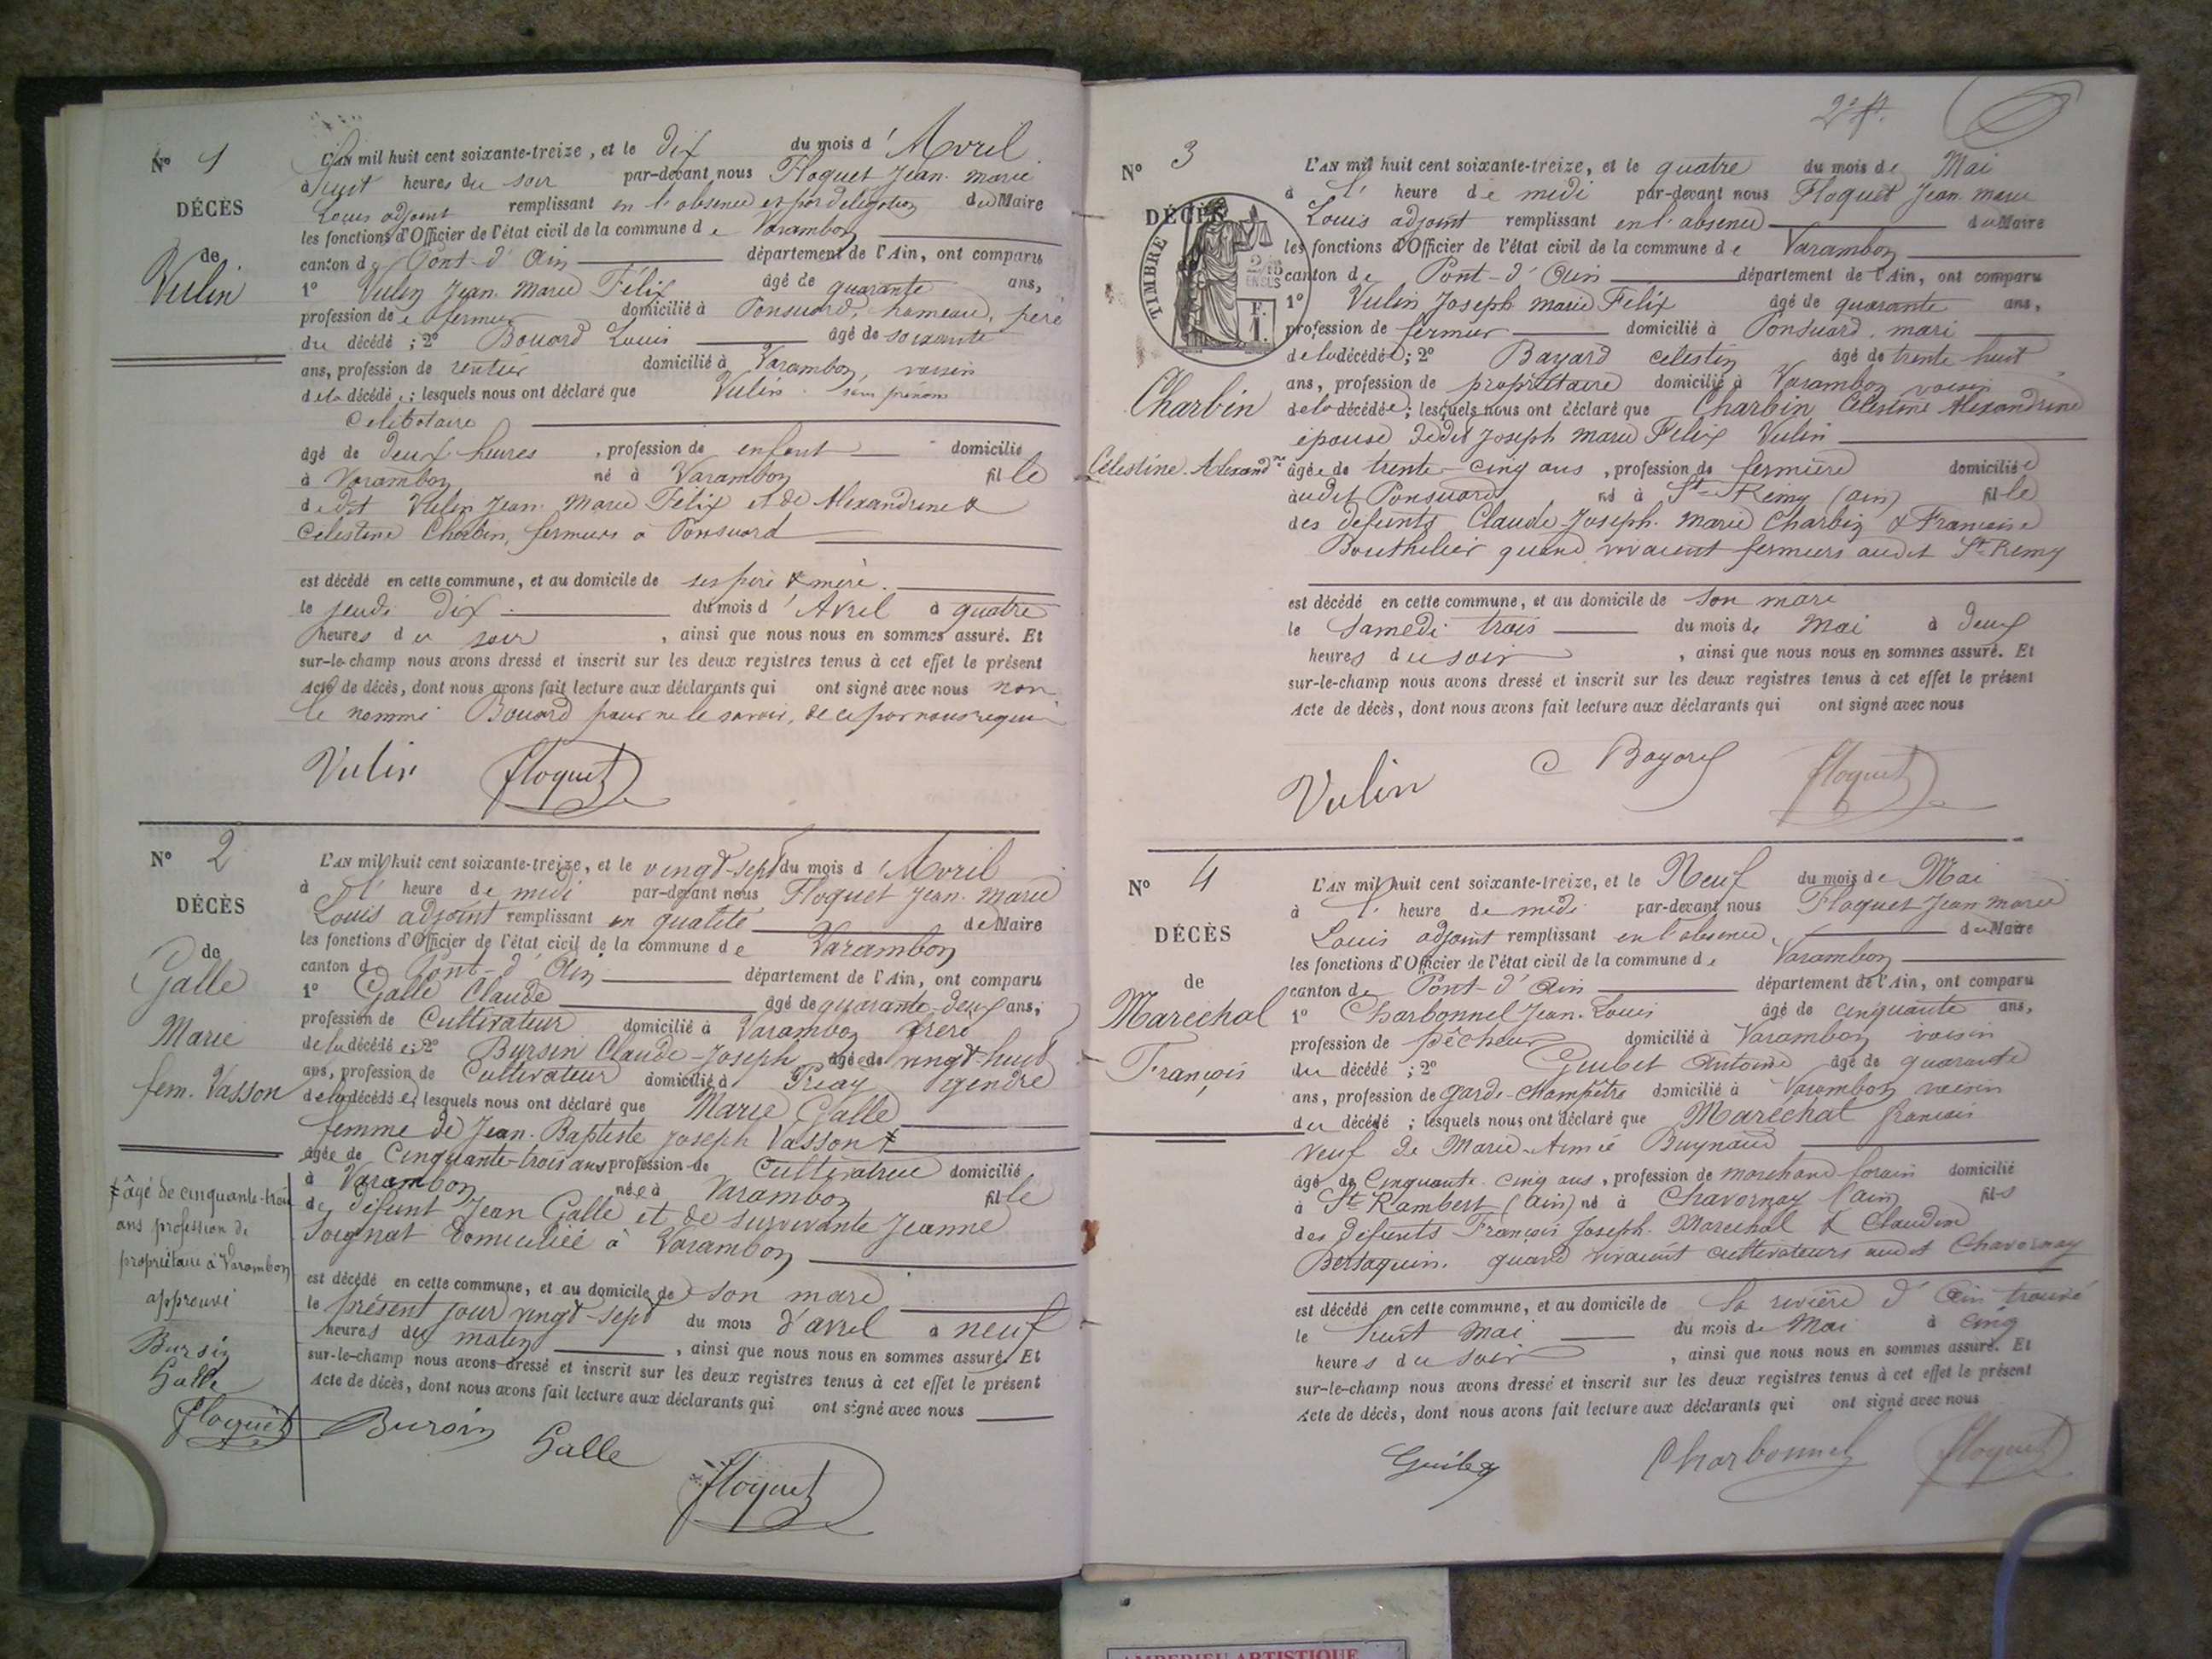 N° 1
DÉCÈS
de
Vulin
L'AN mil huit cent soixante-treize, et le dix du mois d'Avril
à huit heures du soir par-devant nous Floquet Jean-marie
Louis adjoint remplissant en l'absence et par délégation du Maire
les fonctions d'Officier de l'état civil de la commune de Varambon
canton de Pont-d'Ain département de l'Ain, ont comparu
1° Vulin Jean Marie Félix âgé de quarante ans,
profession de fermier domicilié à Ponsuard, hameau, père
du décédé ; 2° Bouard Louis âgé de soixante
ans, profession de rentier domicilié à Varambon, voisin
de la décédée ; lesquels nous ont déclaré que Vulin sans prénom
Celibataire
âgé de deux heures, profession de enfant domicilié
à Varambon né à Varambon fille
dudit Vulin Jean Marie Félix et de Alexandrine &
Celestine Charbin, fermiers à Ponsuard
est décédé en cette commune, et au domicile de ses père & mère.
le jeudi dix du mois d'Avril à quatre
heures du soir, ainsi que nous nous en sommes assuré. Et
sur-le-champ nous avons dressé et inscrit sur les deux registres tenus à cet effet le présent
Acte de décès, dont nous avons fait lecture aux déclarants qui ont signé avec nous non
le nommé Bouard pour ne le savoir, de ce par nous requis
Vulin Floquet
N° 2
DÉCÈS
de
Galle
Marie
fem. Vasson
L'AN mil huit cent soixante-treize, et le vingt-sept du mois d'Avril
à l'heure de midi par-devant nous Floquet Jean-Marie
Louis adjoint remplissant en qualité de Maire
les fonctions d'Officier de l'état civil de la commune de Varambon
canton de Pont-d'Ain département de l'Ain, ont comparu
1° Galle Claude âgé de quarante-deux ans,
profession de Cultivateur domicilié à Varambon frère
de la décédée ; 2° Bursin Claude-Joseph âgé de vingt-huit
ans, profession de Cultivateur domicilié à Priay gendre
de la décédée, lesquels nous ont déclaré que Marie Galle
femme de Jean-Baptiste Joseph Vasson ‡
âgée de Cinquante-trois ans profession de cultivatrice domicilié
à Varambon née à Varambon fille
de défunt Jean Galle et de survivante Jeanne
Soignat domiciliée à Varambon
est décédé en cette commune, et au domicile de son mari
le présent jour vingt-sept du mois d'avril à neuf
heures du matin, ainsi que nous nous en sommes assuré. Et
sur-le-champ nous avons dressé et inscrit sur les deux registres tenus à cet effet le présent
Acte de décès, dont nous avons fait lecture aux déclarants qui ont signé avec nous
‡ âgé de cinquante-trois
ans profession de
propriétaire à Varambon
approuvé
Bursin
Galle
Floquet Bursin Galle
Floquet
2e f.
N° 3
DÉCÈS
TIMBRE
2/10
EN SUS
F.
1.
Charbin
Célestine-Alexandne
L'AN mil huit cent soixante-treize, et le quatre du mois de Mai
à l'heure de midi par-devant nous Floquet Jean-marie
Louis adjoint remplissant en l'absence du Maire
les fonctions d'Officier de l'état civil de la commune de Varambon
canton de Pont-d'Ain département de l'Ain, ont comparu
1° Vulin Joseph marie Félix âgé de quarante ans,
profession de fermier domicilié à Ponsuard, mari
de la décédée ; 2° Bayard celestin âgé de trente huit
ans, profession de propriétaire domicilié à Varambon voisin
de la décédée ; lesquels nous ont déclaré que Charbin Célestine Alexandrine
épouse dudit Joseph marie Félix Vulin
âgée de trente-cinq ans, profession de fermière domiciliée
audit Ponsuard né à St-Rémy (ain) fille
des défunts Claude-Joseph-Marie Charbin & Francoise
Bouthelier quand vivaient fermiers audit St-Remy
est décédé en cette commune, et au domicile de son mari
le samedi trois du mois de mai à deux
heures du soir, ainsi que nous nous en sommes assuré. Et
sur-le-champ nous avons dressé et inscrit sur les deux registres tenus à cet effet le présent
Acte de décès, dont nous avons fait lecture aux déclarants qui ont signé avec nous
Vulin C Bayard Floquet
N° 4
DÉCÈS
de
Maréchal
François
L'AN mil huit cent soixante-treize, et le Neuf du mois de Mai
à l'heure de midi par-devant nous Floquet Jean marie
Louis adjoint remplissant en l'absence du Maire
les fonctions d'Officier de l'état civil de la commune de Varambon
canton de Pont-d'Ain département de l'Ain, ont comparu
1° Charbonnel Jean-Louis âgé de cinquante ans,
profession de pêcheur domicilié à Varambon voisin
du décédé ; 2° Guibet Antoine âgé de quarante
ans, profession de garde-champêtre domicilié à Varambon voisin
du décédé ; lesquels nous ont déclaré que Maréchal françois
veuf de Marie-Aimée Buynaud
âgé de Cinquante-cinq ans, profession de marchand forain domicilié
à St Rambert (Ain) né à Chavornay (ain) fils
des défunts François Joseph Marechal & Claudine
Bertaquin quand vivaient cultivateurs audit Chavornay
est décédé en cette commune, et au domicile de la rivière d'Ain trouvé
le huit mai du mois de Mai à cinq
heures du soir, ainsi que nous nous en sommes assuré. Et
sur-le-champ nous avons dressé et inscrit sur les deux registres tenus à cet effet le présent
Acte de décès, dont nous avons fait lecture aux déclarants qui ont signé avec nous
Guibet Charbonnel Floquet
AMBERIEU ARTISTIQUE